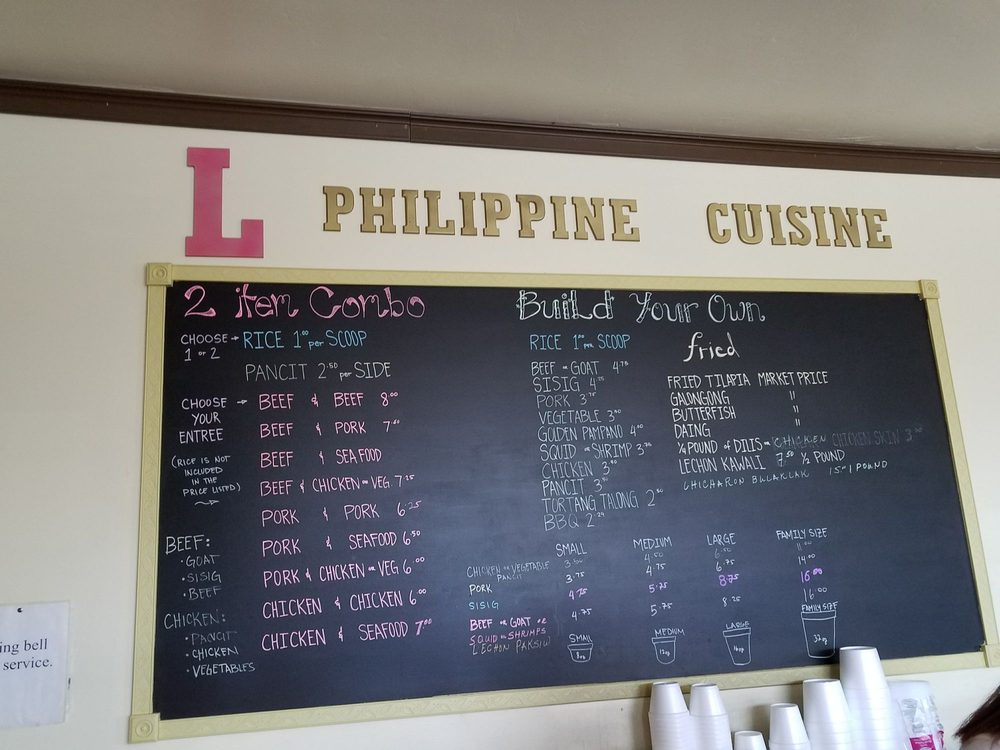 L PHILIPPINE CUISINE
2 item Combo
CHOOSE → RICE 1.00 per SCOOP
1 or 2
PANCIT 2.50 per SIDE
CHOOSE → BEEF & BEEF 8.00
YOUR
ENTREE
BEEF & PORK
(RICE IS NOT
INCLUDED
IN THE
PRICE LISTED)
BEEF & SEAFOOD
BEEF & CHICKEN or VEG 7.25
PORK & PORK 6.25
PORK & SEAFOOD 6.50
PORK & CHICKEN or VEG 6.00
CHICKEN & CHICKEN 6.00
CHICKEN & SEAFOOD 7.00
BEEF:
• GOAT
• SISIG
• BEEF
CHICKEN:
• PANCIT
• CHICKEN
• VEGETABLES
Build Your Own
RICE 1.00 per SCOOP
BEEF or GOAT 4.75
SISIG
PORK 3.75
VEGETABLE 3.50
GOLDEN PAMPANO 4.00
SQUID or SHRIMP 3.75
CHICKEN
PANCIT
TORTANG TALONG
BBQ
fried
FRIED TILAPIA MARKET PRICE
GALUNGONG "
BUTTERFISH "
DAING "
1/4 POUND of DILIS or CHICKEN CHICKEN SKIN
LECHON KAWALI 7.50 1/2 POUND
CHICHARON BULAKLAK 15- 1 POUND
SMALL MEDIUM LARGE FAMILY SIZE
CHICKEN or VEGETABLE 3.50 4.50 6.00
PANCIT
PORK 3.75 4.75 6.75 14.00
SISIG 4.75 5.25 8.75 16.00
BEEF or GOAT or 4.75 5.75 8.25 16.00
SQUID or SHRIMPS
LECHON PAKSIW
SMALL MEDIUM LARGE FAMILY SIZE
8oz 12oz 16oz 32oz
ing bell
service.